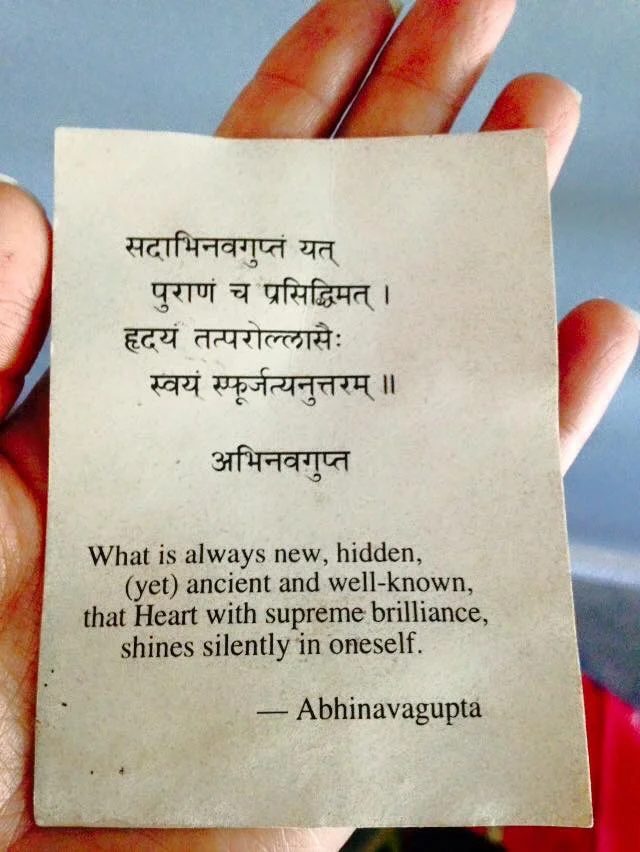 सदाभिनवगुप्तं यत्
पुराणं च प्रसिद्धिमत् ।
हृदयं तत्परोल्लासैः
स्वयं स्फूर्जत्यनुत्तरम् ॥
अभिनवगुप्त
What is always new, hidden,
(yet) ancient and well-known,
that Heart with supreme brilliance,
shines silently in oneself.
— Abhinavagupta